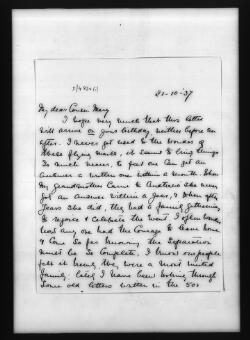 21-10-'37
My dear Cousin Mary
I hope very much that this letter
will arrive on your birthday neither before nor
after. I never get used to the wonders of
these flying mails, it seems to bring things
so much nearer, to feel one can get an
answer a written one within a month. When
My Grandmother Came to Australia she never
got an answer within a year, & when after
years she did, they had a family gathering,
to rejoice & celebrate the event. I often wonder
how any one had the Courage to leave home
& Come so far knowing the Separation
must be so complete, I know our people
felt it being they were a most united
family. Lately I have been looking through
Some old letters written in the '50s